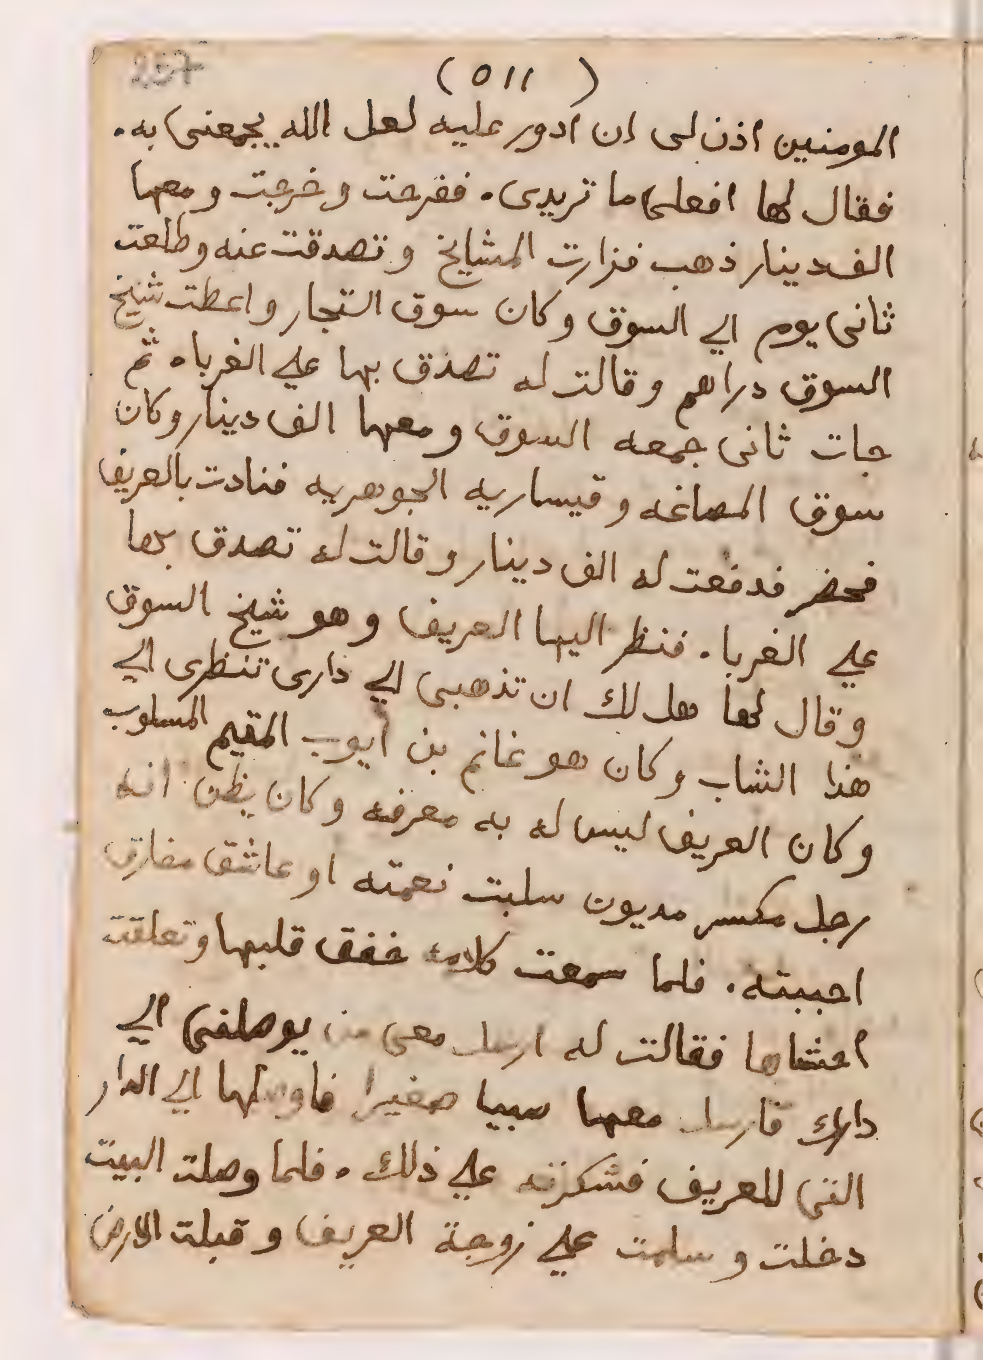 257
(٥١١)
المومنين اذن لى ان ادور عليه لعل الله يجمعنى به.
فقال لها افعلى ما تريدى. ففرحت وخرجت ومعها
الف دينار ذهب فزارت المشايخ وتصدقت عنه وطلعت
ثانى يوم الي السوق وكان سوق التجار واعطت شيخ
السوق دراهم وقالت له تصدق بها علي الغرباء ثم
جات ثانى جمعه السوق ومعها الف دينار وكان
سوق المصاغه وقيساريه الجوهريه فنادت بالعريف
فحضر فدفعت له الف دينار وقالت له تصدق بها
علي الغربا. فنظر اليها العريف وهو شيخ السوق
وقال لها هل لك ان تذهبى الي دارى تنظرى الي
هذا الشاب وكان هو غانم بن أيوب المقيم المسلوب
وكان العريف ليس له به معرفه وكان يظن انه
رجل مكسر مديون سلبت نعمته او عاشق مفارق
احببته. فلما سمعت كلامه خفق قلبها وتعلقت
احشاها فقالت له ارسل معى من يوصلنى الي
دارك فارسل معها سبيا صغيرا فاوصلها الي الدار
التى للعريف فشكرته علي ذلك. فلما وصلت البيت
دخلت وسلمت علي زوجة العريف وقبلت الارض